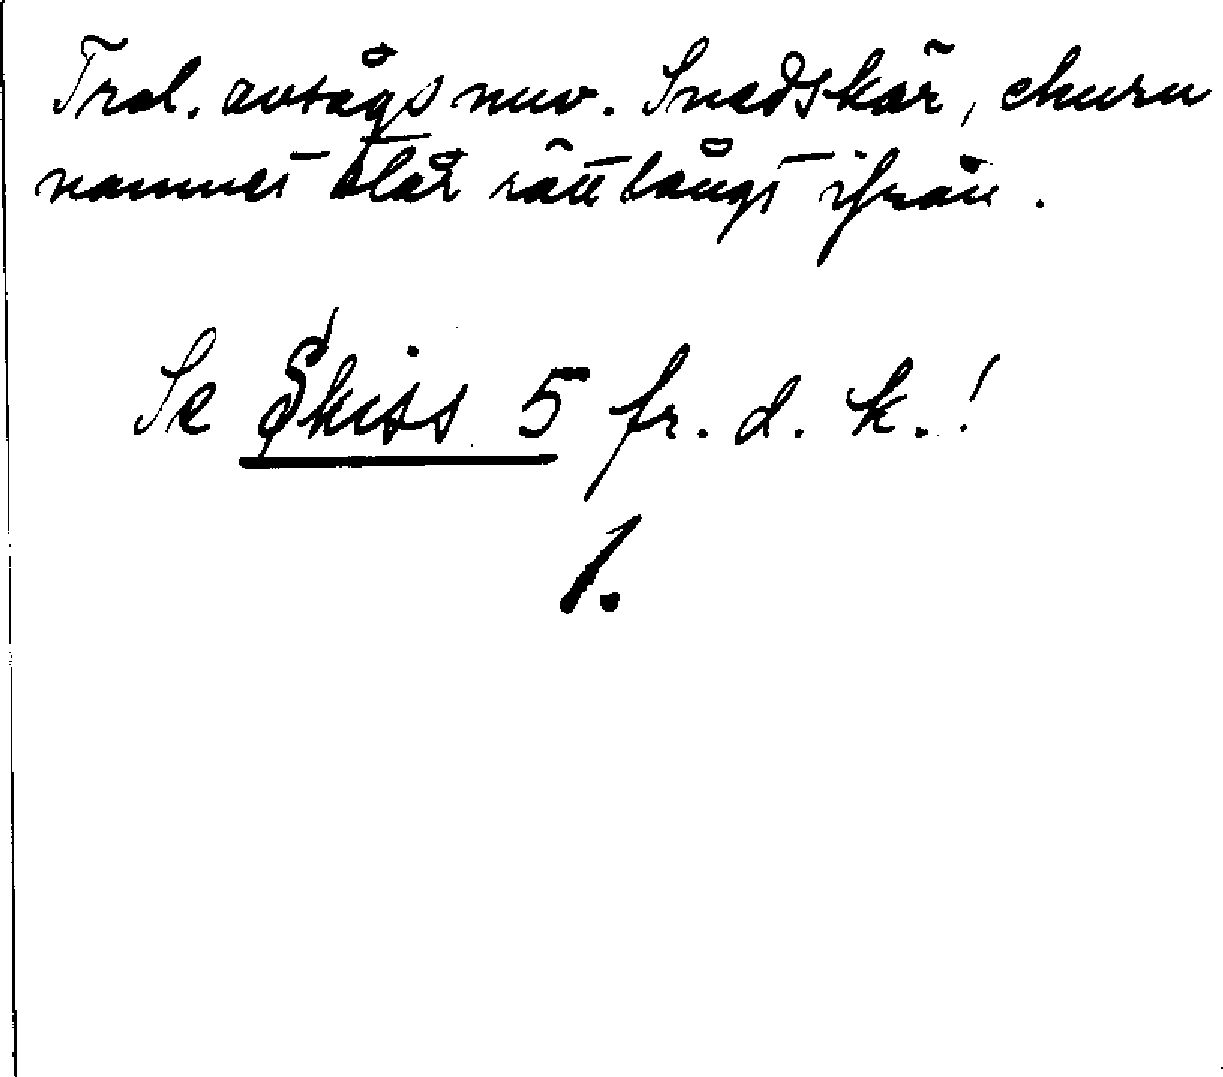 Trol. avsågs nuv. Snedskär, ehuru
namnet står rätt långt ifrån.
Se Skiss 5 fr. d. k.!
1.